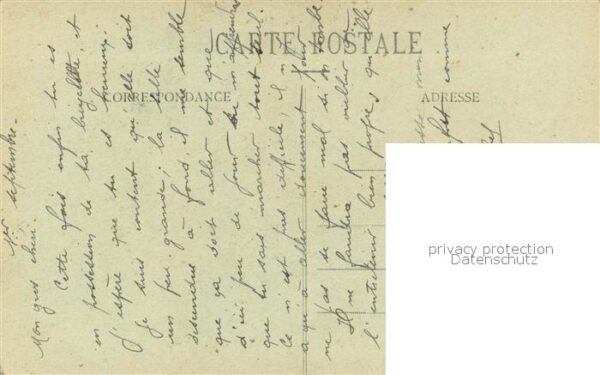 CARTE POSTALE
CORRESPONDANCE
ADRESSE
1er septembre.
Mon gros chéri.
Cette fois enfin tu es
en possession de ta bicyclette, et
j'espère que tu es heureux.
Je suis content qu'elle soit
un peu grande, la selle
descendue à fond, il me semble
que ça doit aller et que
d'ici peu de jours tu m'apprendras
que tu sais marcher tout seul.
Ce n'est pas difficile, il n'y
a qu'à aller doucement pour
ne pas se faire mal si on tombe
Il ne faudra pas oublier de
l'entretenir bien propre, qu'elle
comme
privacy protection
Datenschutz